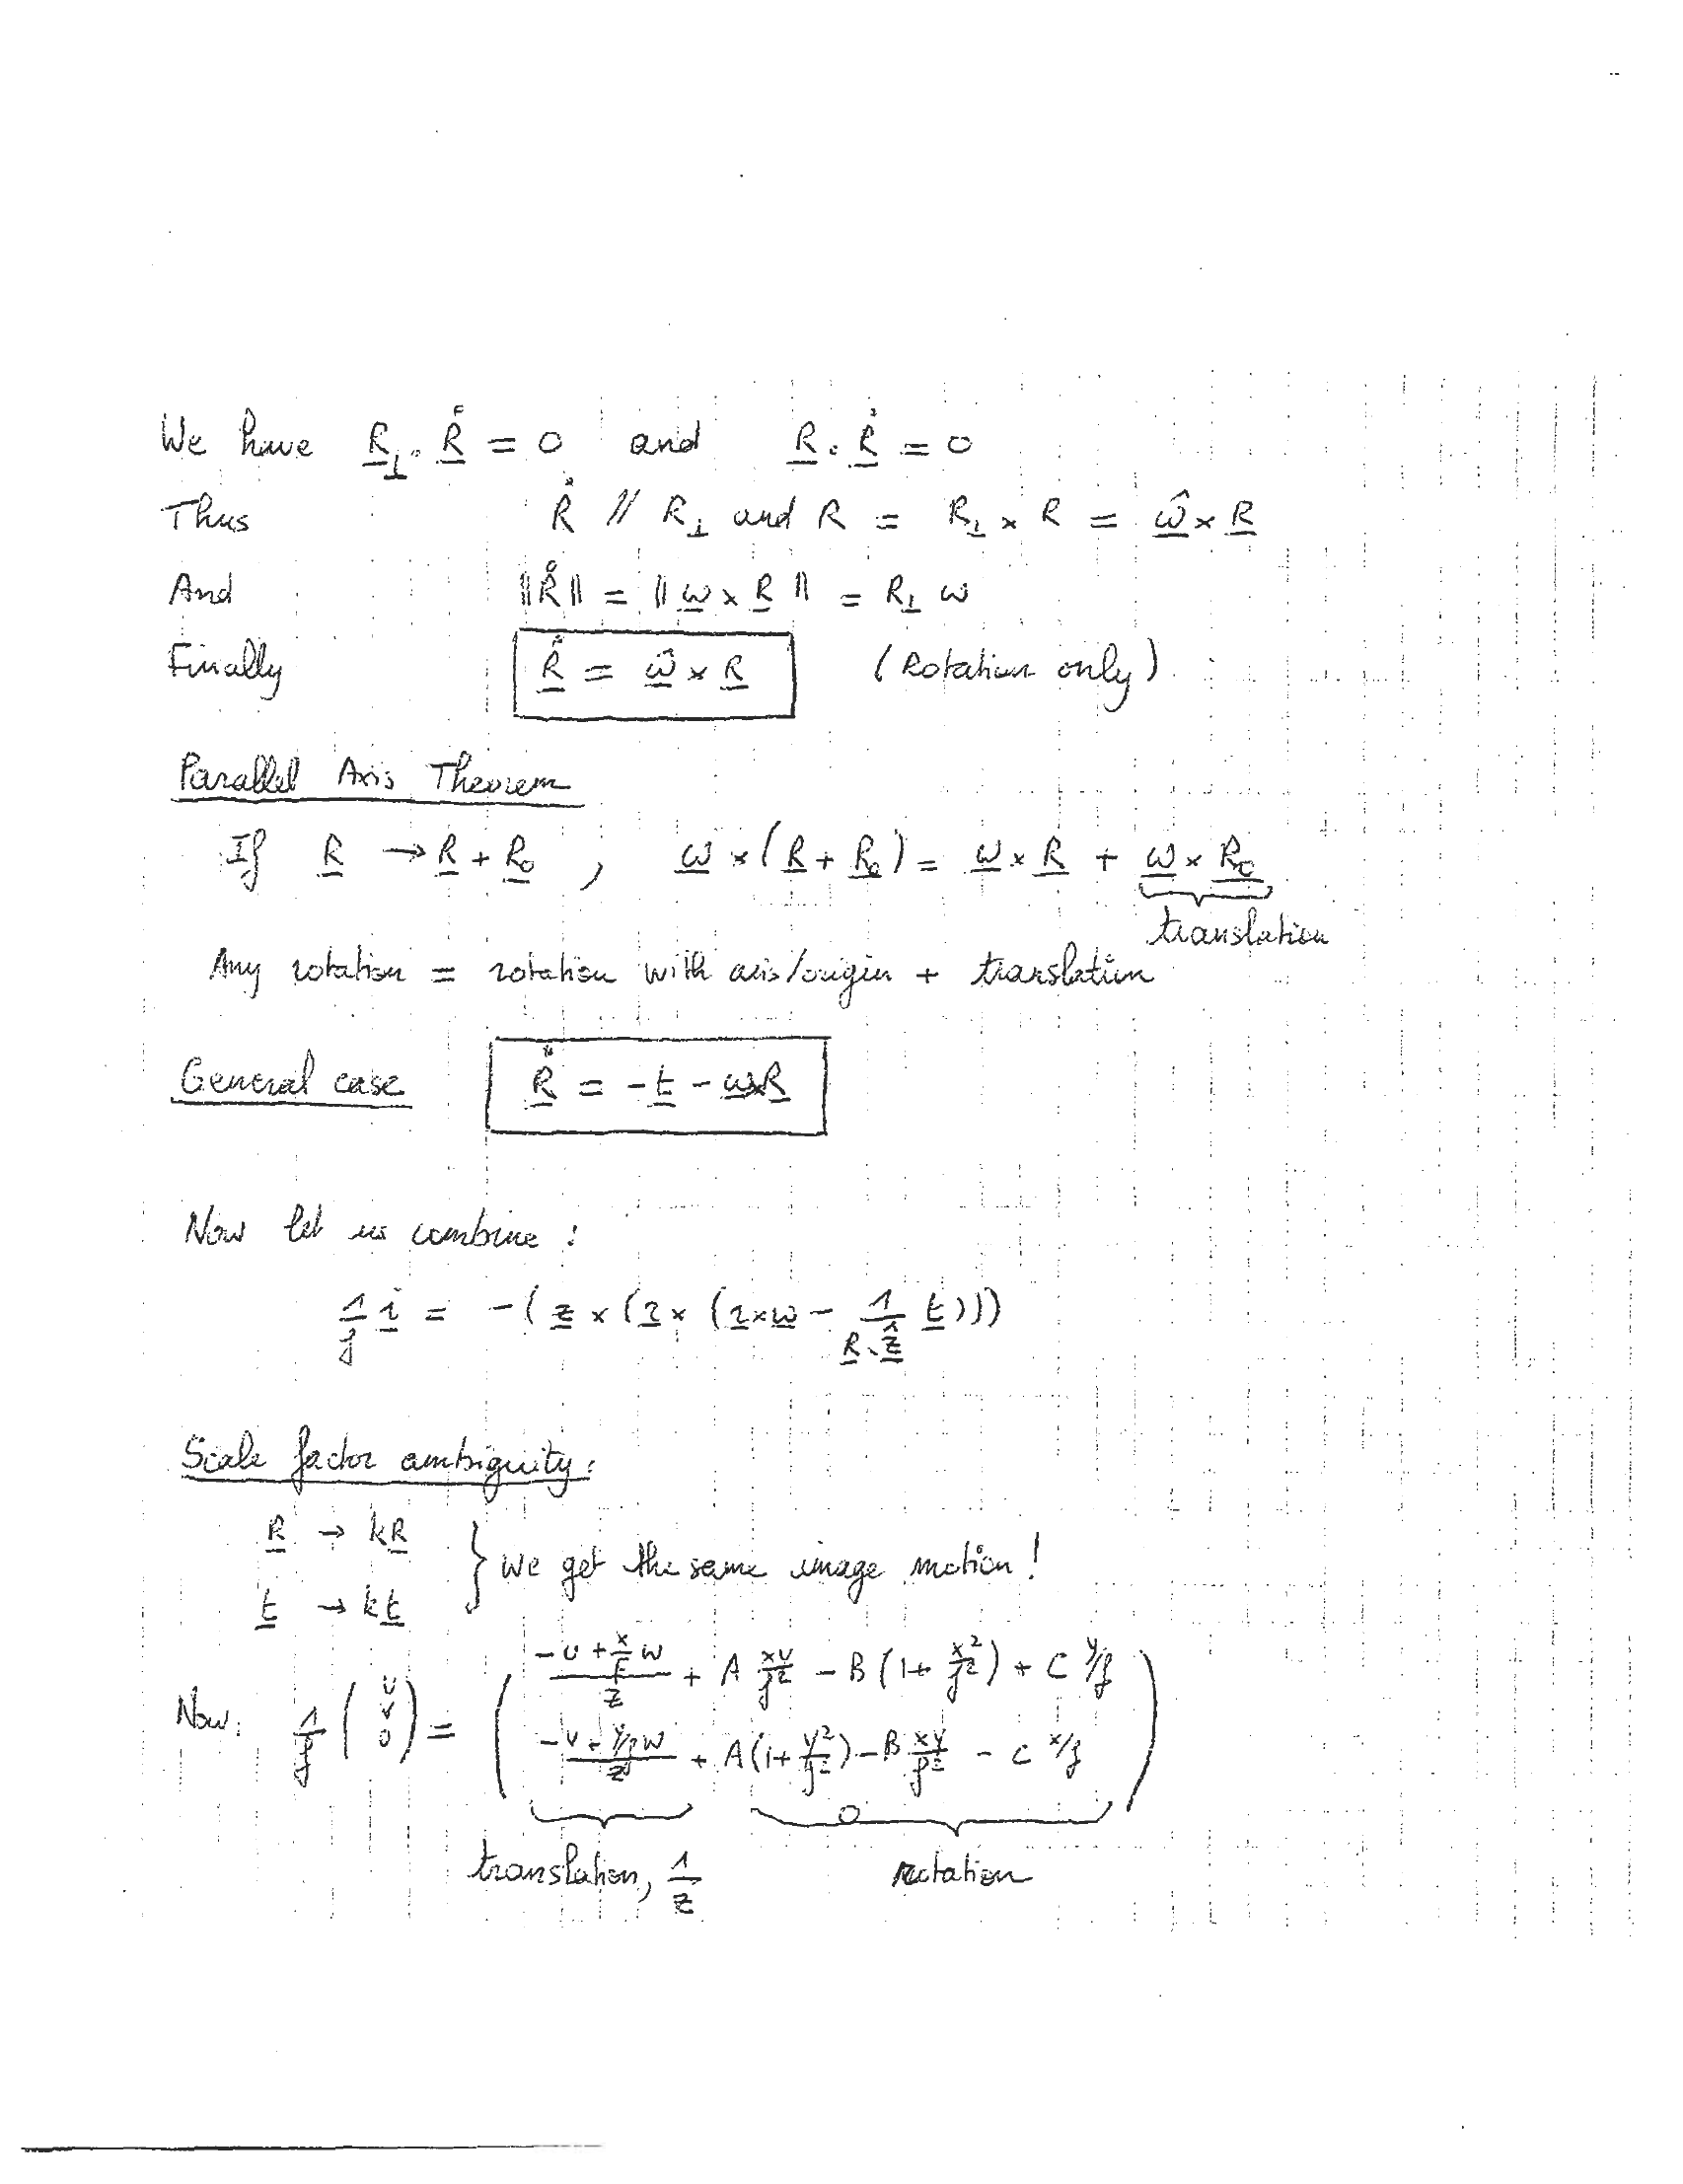 We have R⊥ · Ṙ = 0 and R · Ṙ = 0
Thus Ṙ // R⊥ and R = R⊥ × R = ω̂ × R
And ‖Ṙ‖ = ‖ω × R‖ = R⊥ ω
Finally Ṙ = ω̂ × R (Rotation only)
Parallel Axis Theorem
If R → R + R₀ , ω × (R + R₀) = ω × R + ω × R₀
translation
Any rotation = rotation with axis/origin + translation
General case Ṙ = -t - ω×R
Now let us combine :
1/f ṙ = -(z × (r × (r × ω - 1/(R·ẑ) t)))
Scale factor ambiguity:
R → kR
} we get the same image motion!
t → kt
Now: 1/f (u v 0) = ( (-U + x/f W)/Z + A xy/f² - B(1 + x²/f²) + C y/f
(-V + y/f W)/Z + A(1 + y²/f²) - B xy/f² - C x/f
0 )
translation, 1/Z rotation